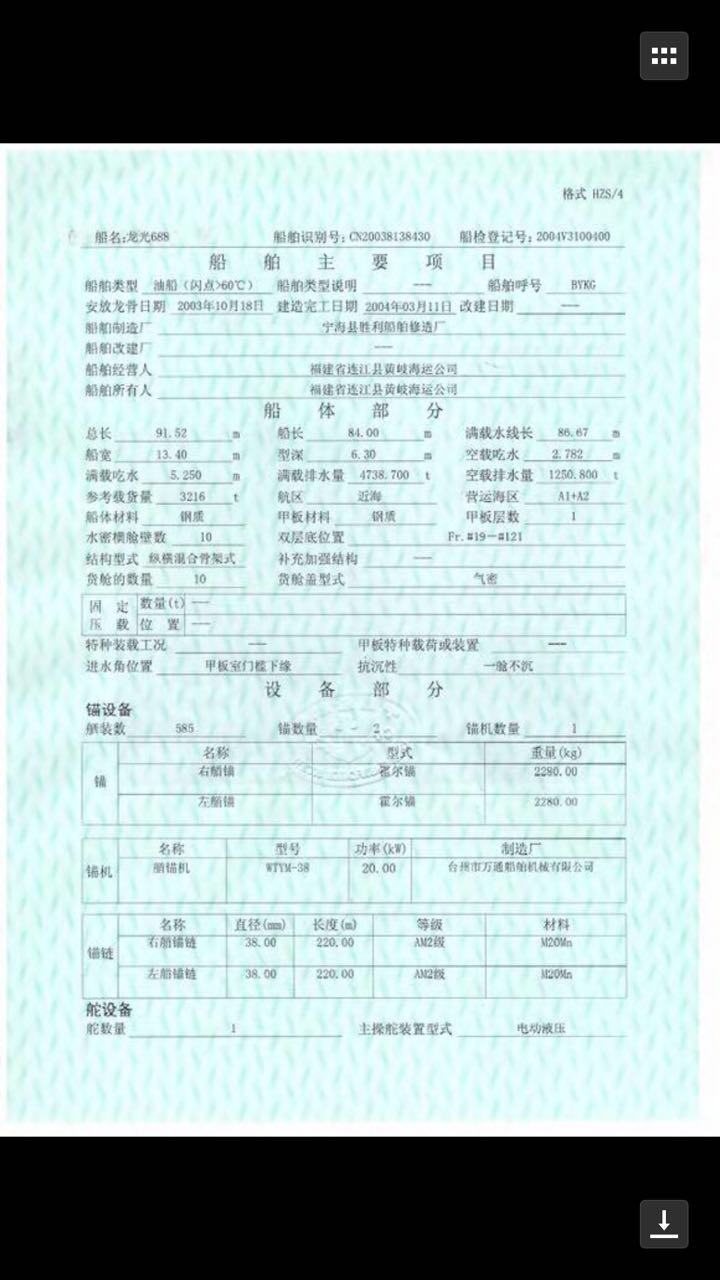 格式 HZS/4
船名:龙光688 船舶识别号:CN20038138430 船检登记号:2004V3100400
船舶主要项目
船舶类型 油船（闪点>60℃） 船舶类型说明 --- 船舶呼号 BYKG
安放龙骨日期 2003年10月18日 建造完工日期 2004年03月11日 改建日期 ---
船舶制造厂 宁海县胜利船舶修造厂
船舶改建厂 ---
船舶经营人 福建省连江县黄岐海运公司
船舶所有人 福建省连江县黄岐海运公司
船体部分
总长 91.52 m 船长 84.00 m 满载水线长 86.67 m
船宽 13.40 m 型深 6.30 m 空载吃水 2.782 m
满载吃水 5.250 m 满载排水量 4738.700 t 空载排水量 1250.800 t
参考载货量 3216 t 航区 近海 营运海区 A1+A2
船体材料 钢质 甲板材料 钢质 甲板层数 1
水密横舱壁数 10 双层底位置 Fr.#19－#121
结构型式 纵横混合骨架式 补充加强结构 ---
货舱的数量 10 货舱盖型式 气密
固定 数量(t) ---
压载 位置 ---
特种装载工况 --- 甲板特种载荷或装置 ---
进水角位置 甲板室门槛下缘 抗沉性 一舱不沉
设备部分
锚设备
舾装数 585 锚数量 2 锚机数量 1
名称 型式 重量(kg)
锚
右艏锚 霍尔锚 2280.00
左艏锚 霍尔锚 2280.00
名称 型号 功率(kW) 制造厂
锚机 艏锚机 WTYM-38 20.00 台州市万通船舶机械有限公司
名称 直径(mm) 长度(m) 等级 材料
锚链
右艏锚链 38.00 220.00 AM2级 M20Mn
左艏锚链 38.00 220.00 AM2级 M20Mn
舵设备
舵数量 1 主操舵装置型式 电动液压